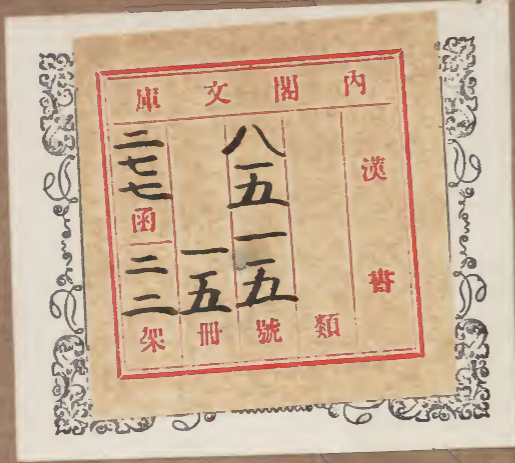 內閣文庫
漢書
類
八五一五號
一五冊
二七七函
二二架